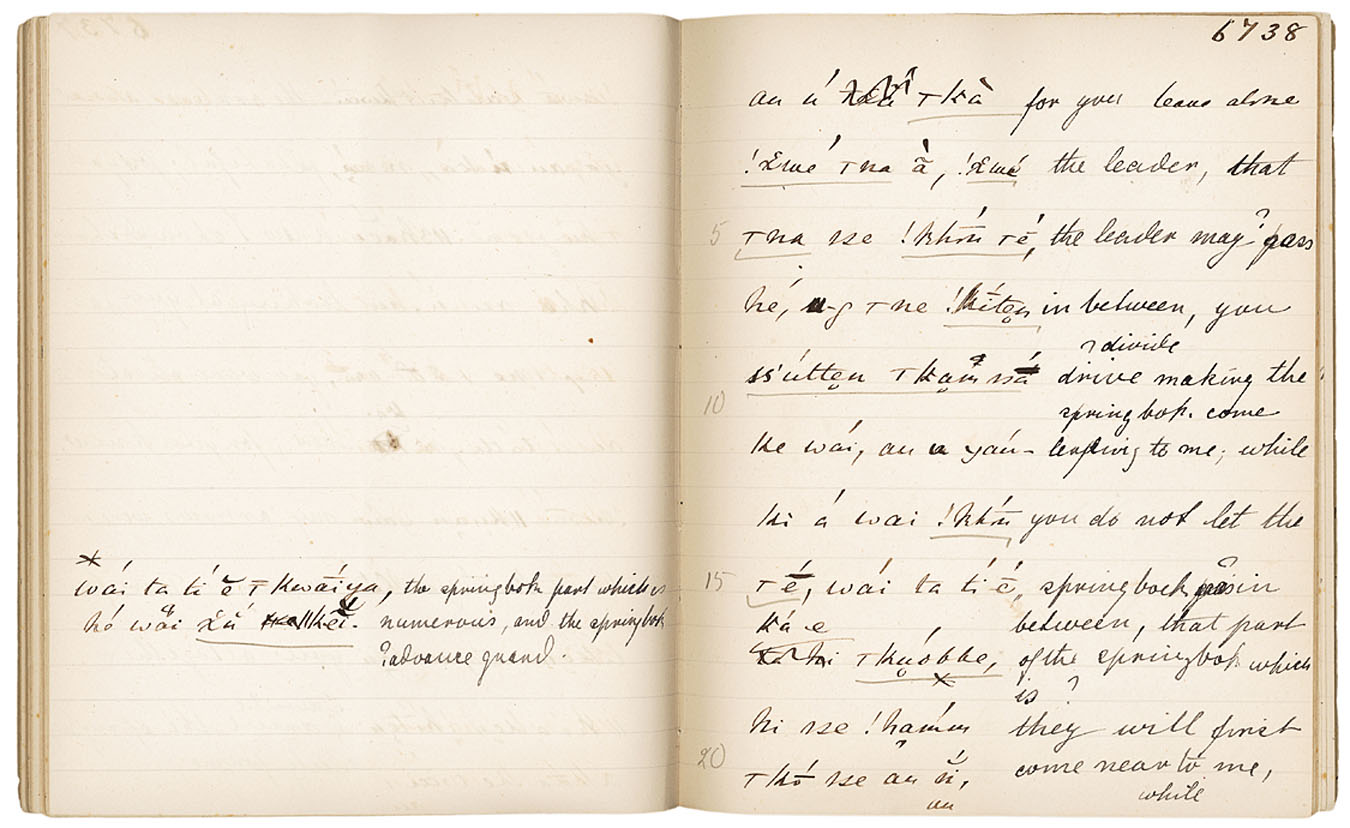 wái ta ti ĕ ꞇ̄ kwáiya, the springbok part which is
hó wăi numerous, and the springbok
?advance guard.
6738
au ú ꞇ kà for you leave alone
!χwé ꞇ na ã̀, !χwé the leader, that
5 ꞇ na sse !khḿ ꞇé, the leader may ? pass
hé, u-g ꞇ ne !kíten in between, you
? divide
ss'útten drive making the
10 springbok come
ke wái, au u yáu- leaping to me; while
ki á wai !khḿ you do not let the
15 ꞇé, wái ta ti é, springbock in
ká e between, that part
ꞇ kuóbbe, of the springbok which
is ?
hi sse !hámm they will first
20 ꞇ kó sse au ń, come near to me,
au while